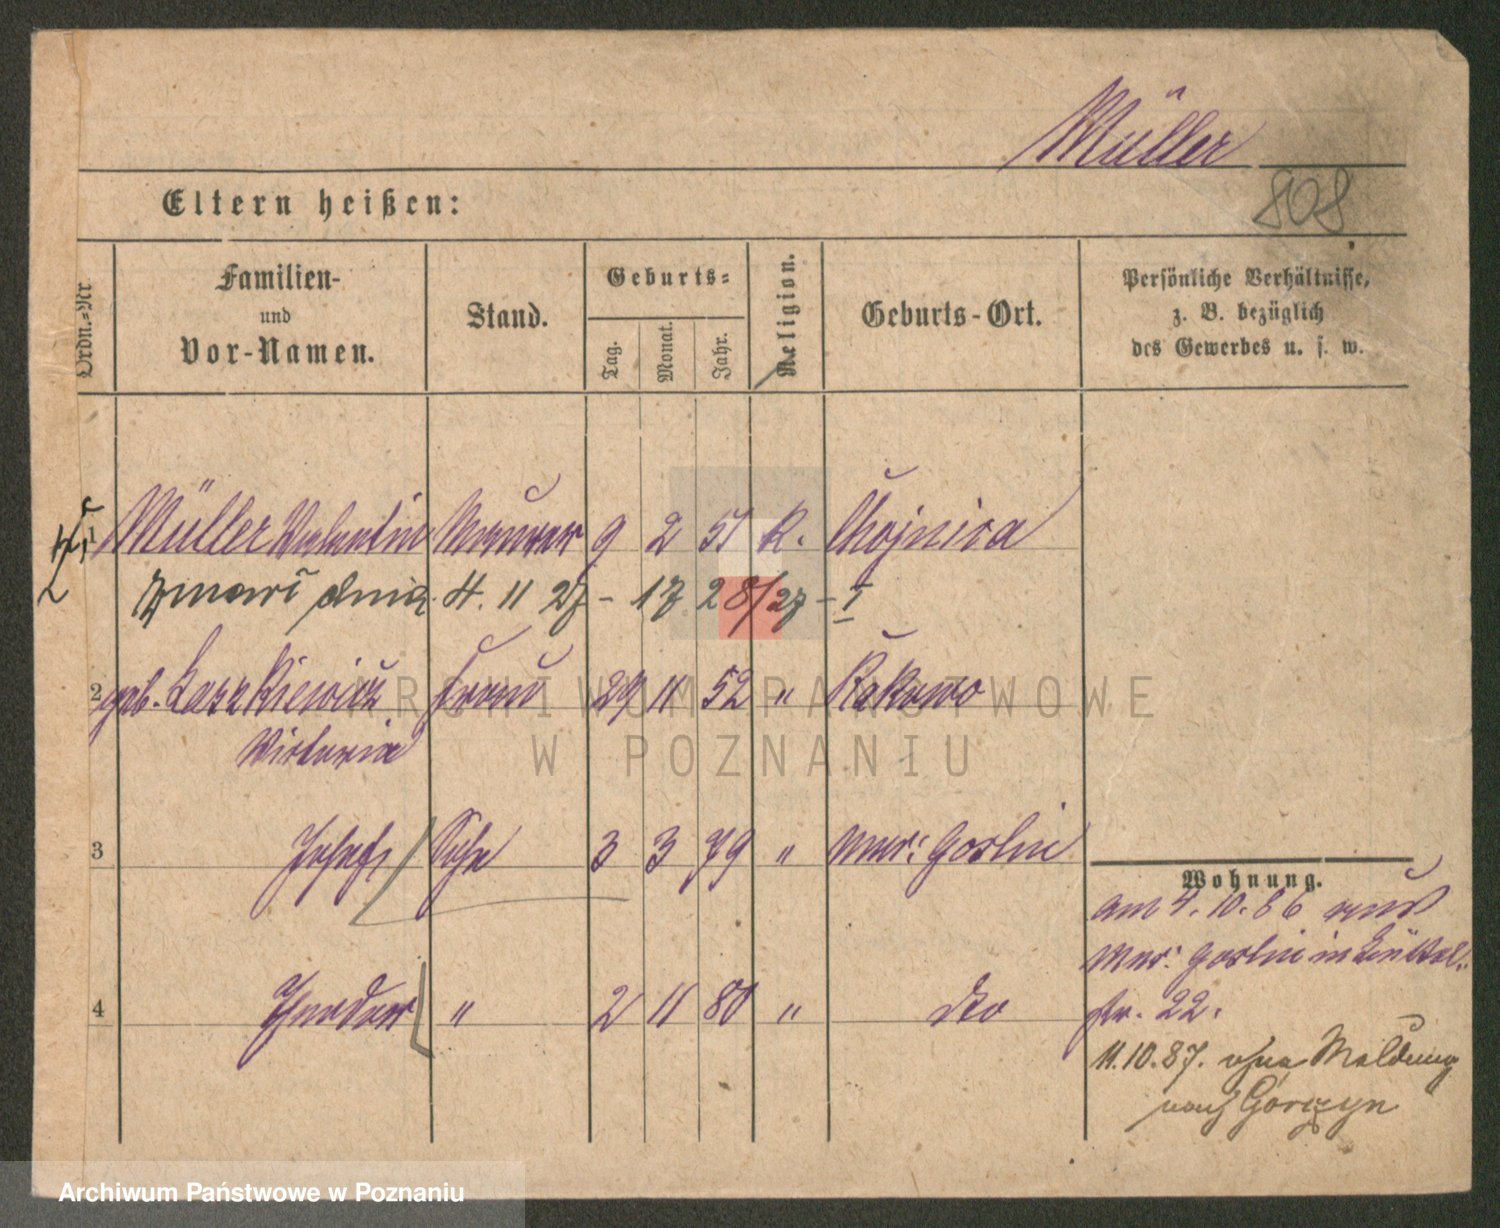 Müller
808
Eltern heißen:
Ordn.-Nr.
Familien-
und
Vor-Namen.
Stand.
Geburts-
Tag.
Monat.
Jahr.
Religion.
Geburts-Ort.
Persönliche Verhältnisse,
z. B. bezüglich
des Gewerbes u. s. w.
1 Müller Valentin Maurer 9 2 51 K. Chojnica
zmarł dnia 4. 11 27 - 17 28/27 - I
2 geb. Laszkiewicz Frau 29 11 52 " Rakowo
Victoria
3 Josef Sohn 3 3 79 " Mur: Goslin
4 Theodor " 2 11 80 " dto
Wohnung.
am 4. 10. 86 aus
Mur: Goslin in
str. 22.
11.10.87. ohne Meldung
nach Górczyn
ARCHIWUM PAŃSTWOWE
W POZNANIU
Archiwum Państwowe w Poznaniu